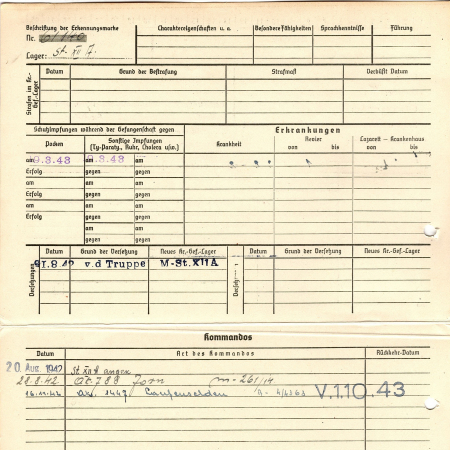 Beschriftung der Erkennungsmarke
Nr.
Lager: St. XII A.
Charaktereigenschaften u. a.
Besondere Fähigkeiten
Sprachkenntnisse
Führung
Strafen im Kr.-Gef.-Lager
Datum
Grund der Bestrafung
Strafmaß
Verbüßt Datum
Schutzimpfungen während der Gefangenschaft gegen
Pocken
Sonstige Impfungen
(Ty-Paraty., Ruhr, Cholera usw.)
Erkrankungen
Krankheit
Revier
von bis
Lazarett – Krankenhaus
von bis
am 9.3.43 am 9.3.43 am
Erfolg gegen gegen
am am am
Erfolg gegen gegen
am am am
Erfolg gegen gegen
am am
gegen gegen
Versetzungen
Datum
Grund der Versetzung
Neues Kr.-Gef.-Lager
Datum
Grund der Versetzung
Neues Kr.-Gef.-Lager
v.d Truppe M-St.XIIA
Kommandos
Datum
Art des Kommandos
Rückkehr-Datum
20. Aug. 1942 St XII A
28.8.42 788
16.11.42 1447 Laufenselden
V.1.10.43